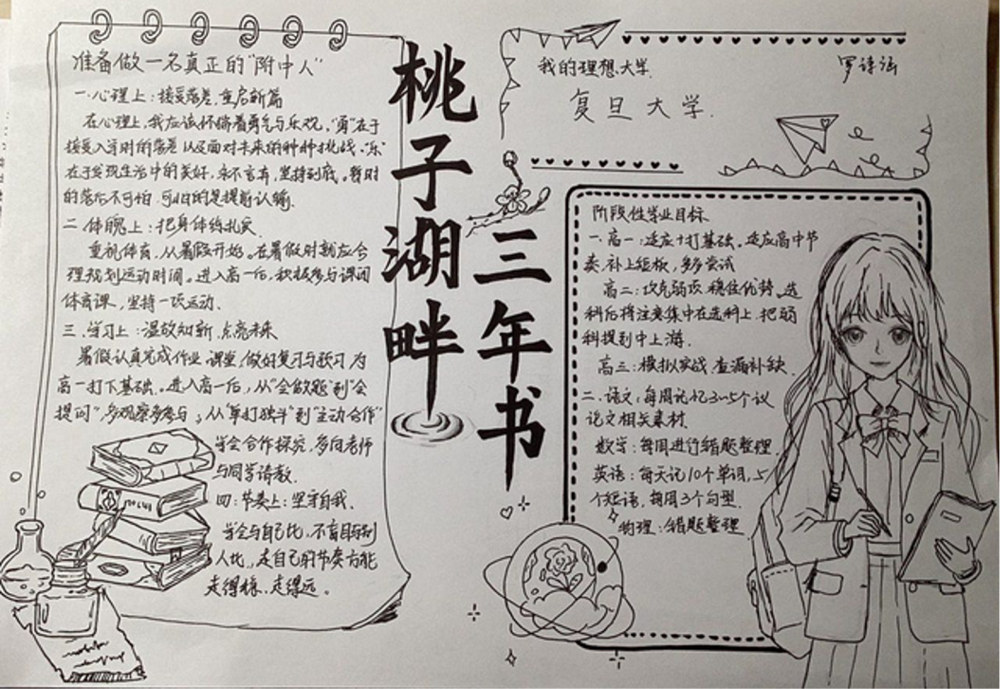 准备做一名真正的"附中人"
一.心理上：接受落差，重启新篇
在心理上，我应该怀揣着勇气与乐观，"勇"在于
接受入学时的落差以及面对未来的种种挑战，"乐"
在于发现生活中的美好，永不言弃，坚持到底。暂时
的落后不可怕，可怕的是提前认输.
二.体魄上：把身体练扎实.
重视体育，从暑假开始。在暑假时就应合
理规划运动时间。进入高一后，积极参与课间
体育课，坚持一项运动.
三.学习上：温故知新，点亮未来
暑假认真完成作业,课堂,做好复习与预习为
高一打下基础。进入高一后，从"会做题"到"会
提问"，多观察多参与，从"单打独斗"到"主动合作"
学会合作探究，多向老师
与同学请教.
四：节奏上：坚守自我.
学会与自己比，不盲目与别
人比，走自己的节奏方能
走得稳，走得远。
桃子湖畔
三年书
我的理想大学.
罗诗涵
复旦大学.
阶段性学业目标
一.高一：适应+打基础。适应高中节
奏，补上短板，多多尝试
高二：攻克弱项，稳住优势。选
科后将注意集中在选科上，把弱
科提到中上游.
高三：模拟实战，查漏补缺.
二.语文：每周记忆3~5个议
论文相关素材.
数学：每周进行错题整理.
英语：每天记10个单词，5
个短语，每周3个句型.
物理：错题整理